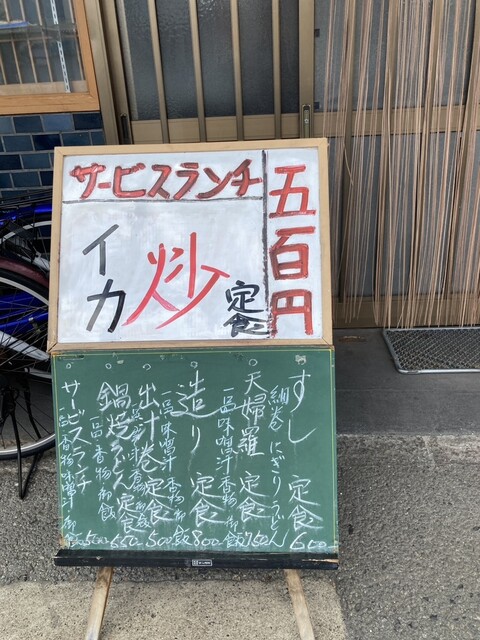 サービスランチ
五百円
イカ炒定食
すし定食 600
細巻 にぎり うどん
天婦羅定食 750
一品 味噌汁 香物 御飯
造り定食 800
一品 味噌汁 香物 御飯
出汁巻定食 500
一品 味噌汁 香物 御飯
鍋焼うどん定食 650
一品 香物 御飯
サービスランチ 500
一品 香物 味噌汁 御飯